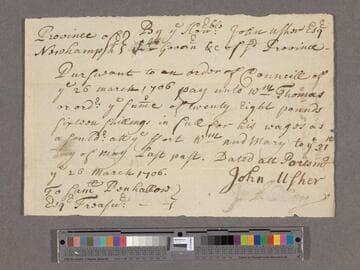 Province of By yᵉ Honᵇˡᵉ John Usher Esq
Newhampshʳ Lᵗ Governʳ &c of sᵈ Province.
Pursuant to an order of Councill of
yᵉ 26 march 1706 pay unto Wᵐ Thomas
or ordʳ yᵉ sume of twenty Eight pounds
sixteen shillings in full for his wages as
a souldʳ att yᵉ fort Wᵐ and Mary to yᵉ 21ᵗʰ
day of may Last past. Dated att Portsmᵒ
yᵉ 26 March 1706.
John Usher
To Samˡ Penhallow
Esqʳ Treasuʳ